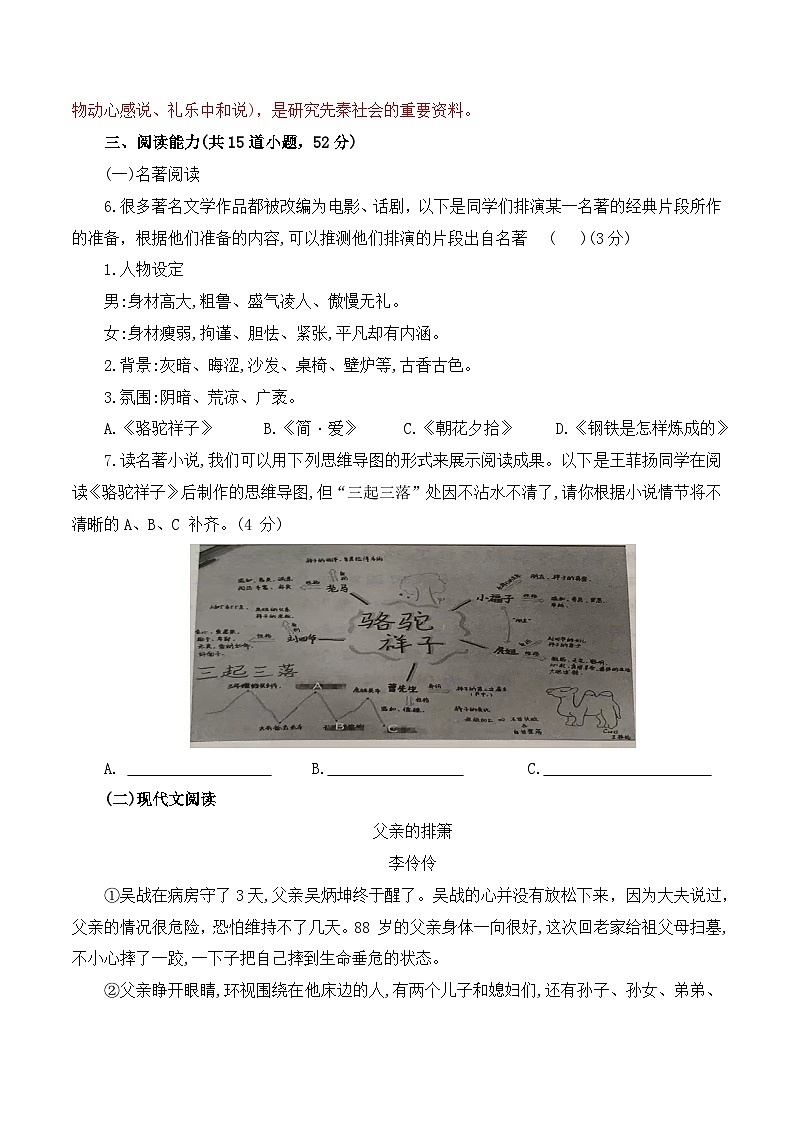 物动心感说、礼乐中和说)，是研究先秦社会的重要资料。
三、阅读能力(共15道小题，52分)
(一)名著阅读
6.很多著名文学作品都被改编为电影、话剧，以下是同学们排演某一名著的经典片段所作
的准备，根据他们准备的内容,可以推测他们排演的片段出自名著 ( )(3分)
1.人物设定
男:身材高大,粗鲁、盛气凌人、傲慢无礼。
女:身材瘦弱,拘谨、胆怯、紧张,平凡却有内涵。
2.背景:灰暗、晦涩,沙发、桌椅、壁炉等,古香古色。
3.氛围:阴暗、荒凉、广袤。
A.《骆驼祥子》 B.《简·爱》 C.《朝花夕拾》 D.《钢铁是怎样炼成的》
7.读名著小说,我们可以用下列思维导图的形式来展示阅读成果。以下是王菲扬同学在阅
读《骆驼祥子》后制作的思维导图,但“三起三落”处因不沾水不清了,请你根据小说情节将不
清晰的A、B、C 补齐。(4 分)
老马
小福子
骆驼
祥子
刘四爷
虎妞
三起三落
曹先生
A
B
C
A. B. C.
(二)现代文阅读
父亲的排箫
李伶伶
①吴战在病房守了3天,父亲吴炳坤终于醒了。吴战的心并没有放松下来，因为大夫说过，
父亲的情况很危险，恐怕维持不了几天。88 岁的父亲身体一向很好,这次回老家给祖父母扫墓,
不小心摔了一跤,一下子把自己摔到生命垂危的状态。
②父亲睁开眼睛,环视围绕在他床边的人,有两个儿子和媳妇们,还有孙子、孙女、弟弟、